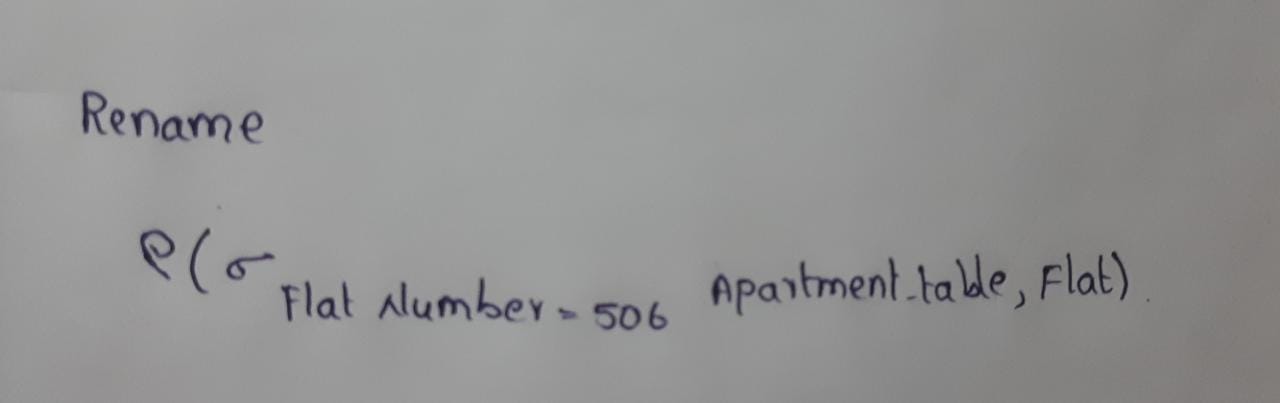 Rename
ρ(σ Flat Number = 506 Apartment_table, Flat)